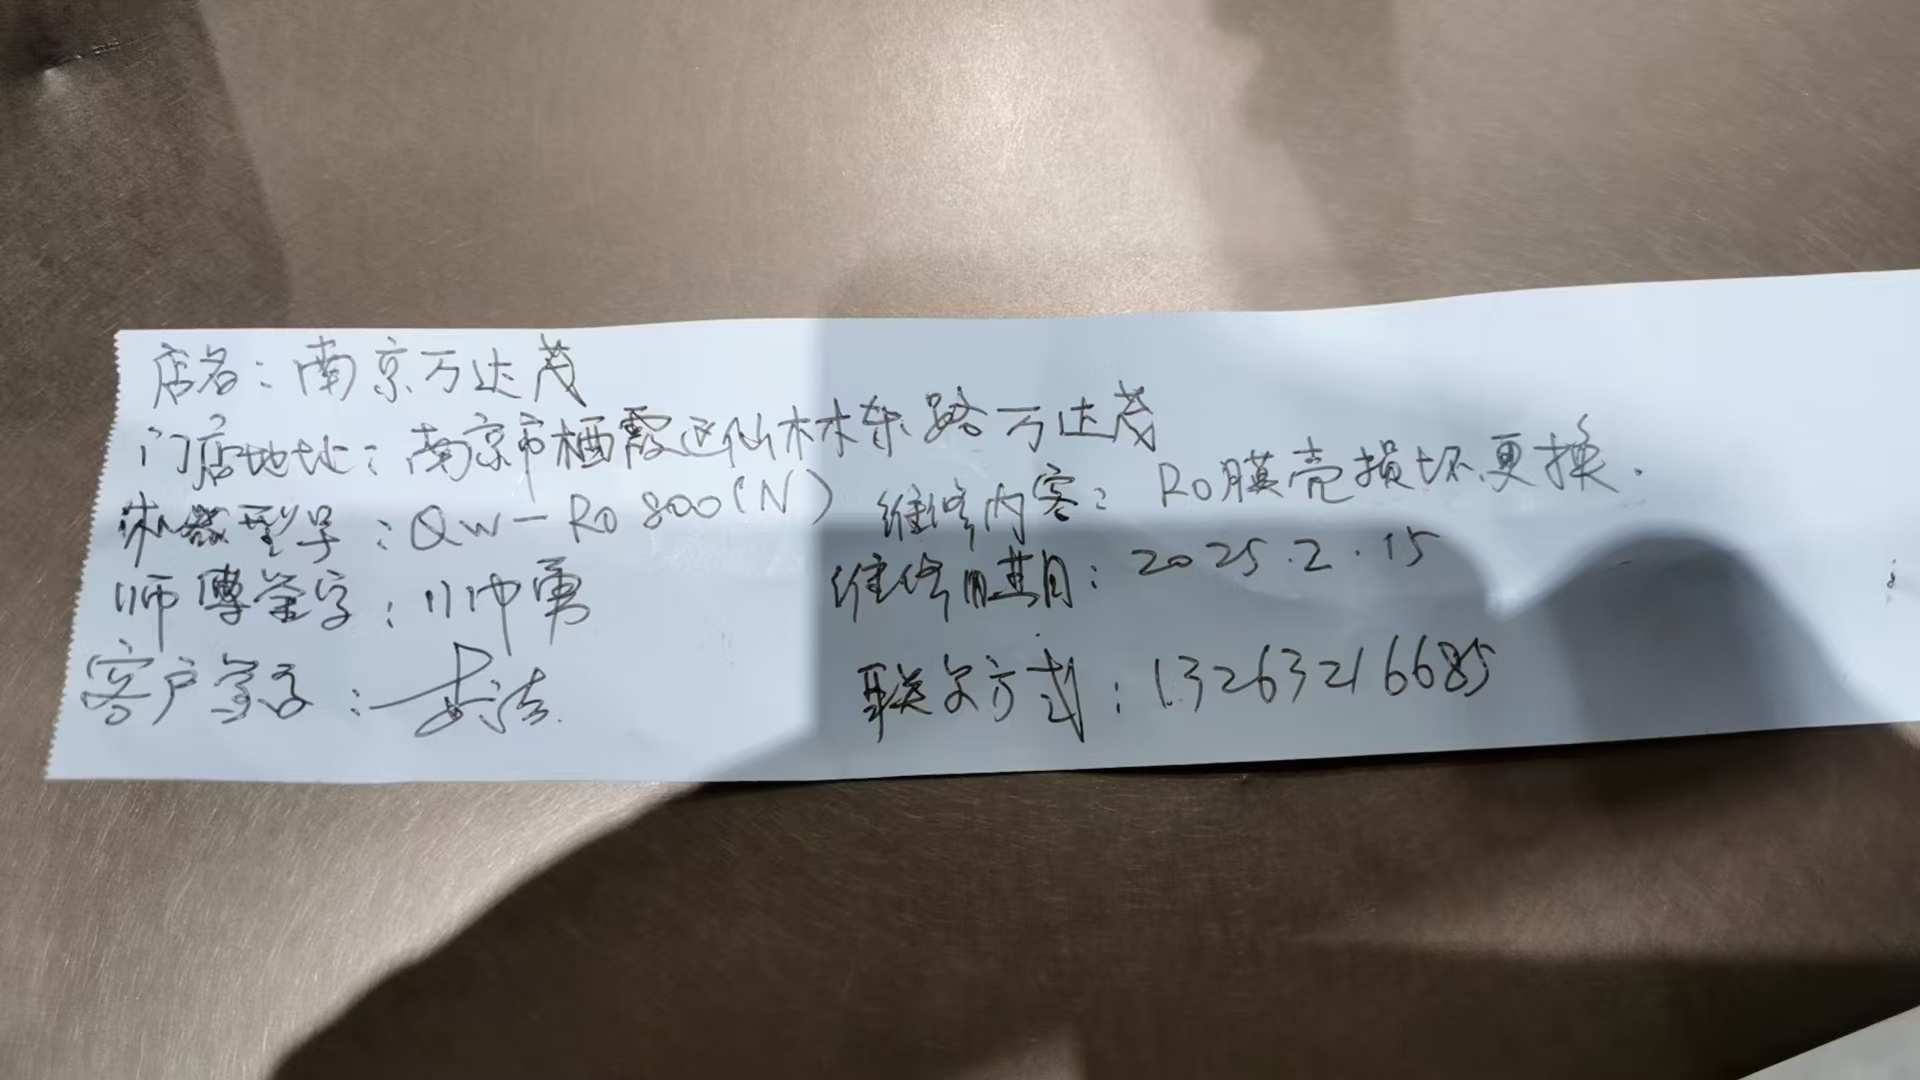 店名：南京万达茂
门店地址：南京市栖霞区仙林东路万达茂
机器型号：QW-RO 800(N) 维修内容：RO膜壳损坏更换.
师傅签字：帅勇 维修日期：2025.2.15
客户签字： 联系方式：13263216685